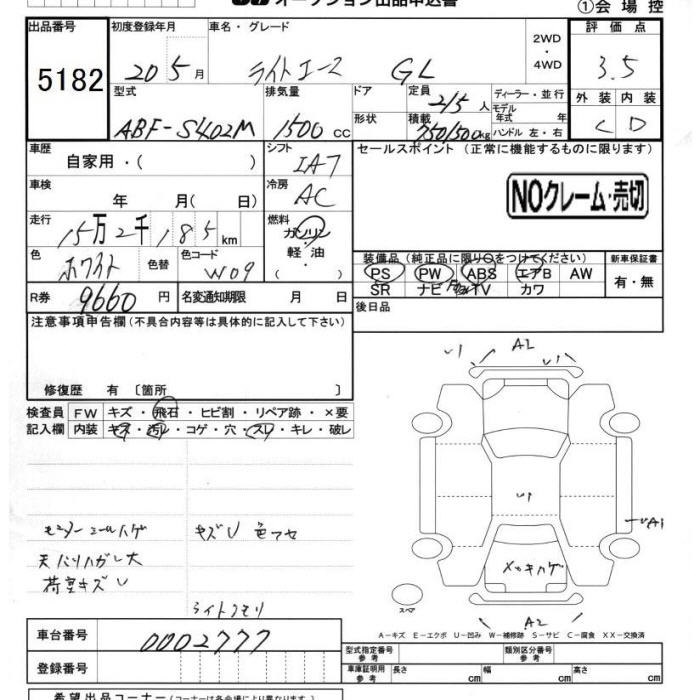 オークション出品申込書
①会場控
出品番号 初度登録年月 車名・グレード 2WD ・4WD 評価点
5182 20 5月 ライトエース GL 3.5
型式 排気量 ドア 定員 2/5人 ディーラー・並行 外装 内装
ABF-S402M 1500cc 形状 積載 750/500kg モデル年式 年 ハンドル 左・右 C D
車歴 シフト セールスポイント(正常に機能するものに限ります)
自家用・( ) IA7
車検 冷房
年 月( 日) AC NOクレーム・売切
走行 燃料
15万2千185km ガソリン
色 色替 色コード 軽・油 装備品(純正品に限り○をつけてください) 新車保証書
ホワイト W09 PS PW ABS エアB AW 有・無
R券 9660円 名変通知期限 月 日 SR ナビ TV カワ
後日品
注意事項申告欄(不具合内容等は具体的に記入して下さい)
修復歴 有〔箇所 〕
U1 A2 U1
検査員 FW キズ・飛石・ヒビ割・リペア跡・×要
記入欄 内装 キズ・汚レ・コゲ・穴・スレ・キレ・破レ
U1
A1
キズU 色アセ
天バリハガレ大
荷室キズU
メッキハゲ
スペア
ライトクモリ
A2
A-キズ E-エクボ U-凹み W-補修跡 S-サビ C-腐食 XX-交換済
車台番号 0002777
型式指定番号 参考 類別区分番号 参考
登録番号 車庫証明用 参考 長さ cm 幅 cm 高さ cm
希望出品コーナー(コーナーは各会場により異なります。)